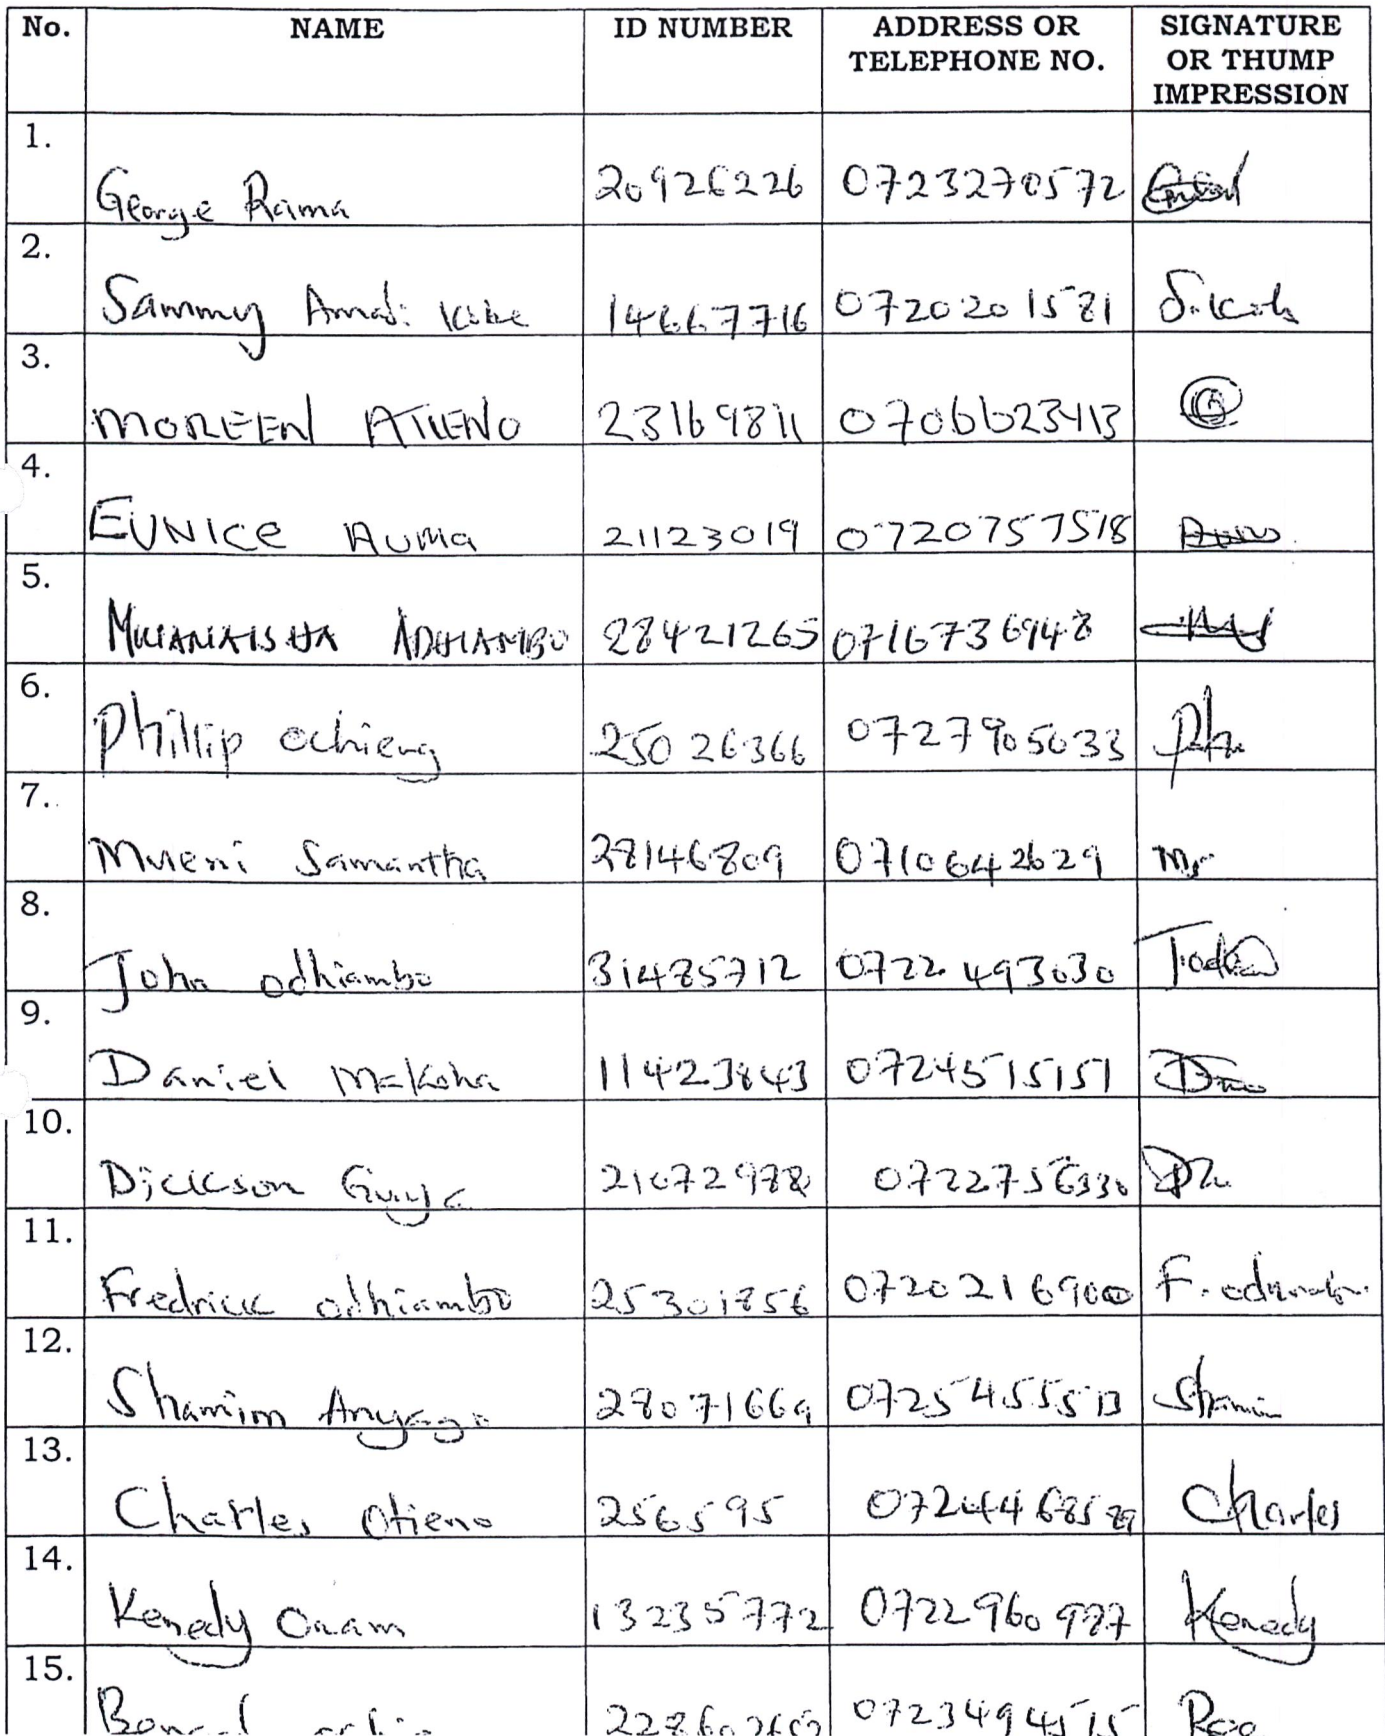 No. NAME ID NUMBER ADDRESS OR TELEPHONE NO. SIGNATURE OR THUMP IMPRESSION
1. George Rama 20926226 0723270572
2. Sammy 14667716 0720201581
3. MOREEN ATIENO 23169811 0706623413
4. EUNICE AUMA 21123019 0720757518
5. MWANAISHA ADHIAMBO 28421265 0716736948
6. Phillip ochieng 25026366 0727905033
7. Mueni Samantha 28146809 0710642629
8. John odhiambo 31485712 0722493030
9. Daniel Makoha 11423843 0724515151
10. Dickson 21072988 0722756330
11. Fredrick odhiambo 25301856 0720216900
12. Shamim Anyango 28071669 0725455513
13. Charles Otieno 256595 Charles
14. Kenedy Onam 13235772 0722960987 Kenedy
15.